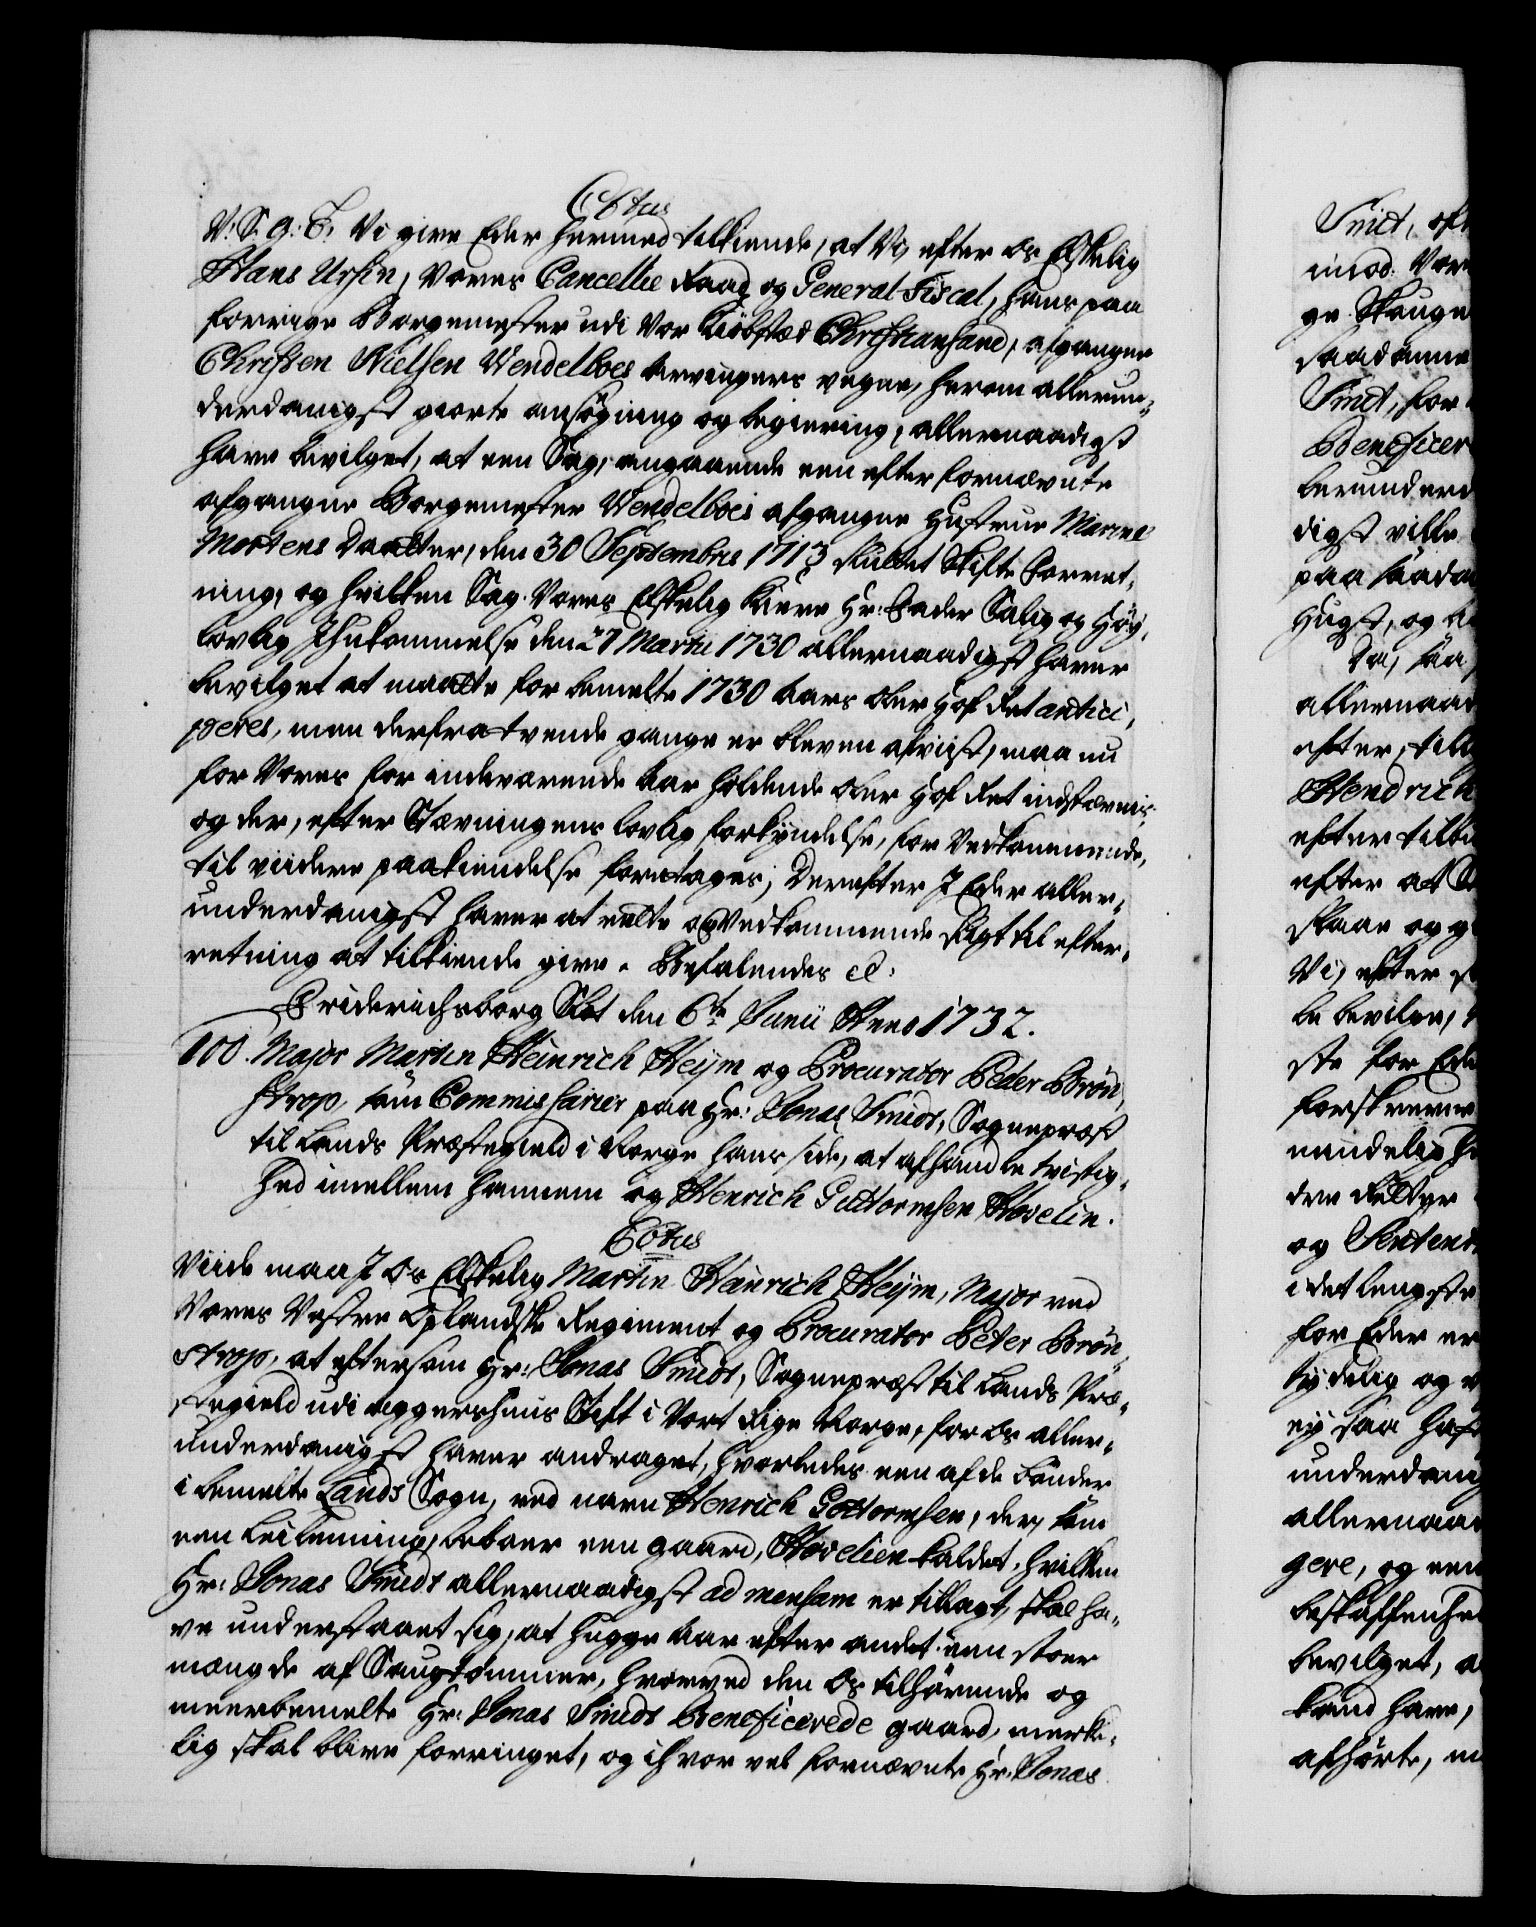 C6tus
V: S. G: T. Vi give Eder hermed tilkiende, at Vi, efter Os Elskelig
Hans Ursin, Vores Cancellie Raad og General-Fiscal, hans paa
forrige Borgemester udi Vor Kiøbstæd Christiansand, afgangne
Christen Nielsen Wendelboes Arvingers vegne, herom allerun-
derdanigst giorte ansøgning og begiering, allernaadigst
have bevilget, at een Sag, angaaende een efter fornævnte
afgangne Borgemester Wendelboes afgangne Hustrue Marine
Mortens Daatter, den 30 Septembris 1713 sluttet Skifte Forret-
ning, og hvilken Sag Vores Elskelig Kiere Hr: Fader Salig og Høy-
lovlig Ihukommelse den 27 Martii 1730 allernaadigst haver
bevilget at maatte for bemelte 1730 Aars Over Hof Ret antici-
peres, men derfra tvende gange er bleven afviist, maa nu
for Vores for indeværende Aar holdende Over Hof Ret indstævnis,
og der, efter Stævningens lovlig forkyndelse, for Vedkommende,
til viidere paakiendelse foretages; Derefter I Eder aller-
underdanigst haver at rette og Vedkommende sligt til efter-
retning at tilkiende give. Befalendes etc:
Friderichsborg Slot den 6te Junii Anno 1732.
100. Major Martin Heinrich Heijm og Procurator Peder Brøn-
strop, som Commissarier paa Hr: Jonas Smidt, Sognepræst
til Lands Præstegield i Norge hans side, at afhandle tvistig-
hed imellem hannem og Henrich Guttormsen Hovelin.
Totus
Viide maa I Os Elskelig Martin Heinrich Heijm, Major ved
Vores Vestre Oplandske Regiment og Procurator Peter Brøn-
strop, at eftersom Hr: Jonas Smidt, Sognepræst til Lands Præ-
stegield udi Aggershuus Stift i Vort Rige Norge, for Os aller-
underdanigst haver andraget, hvorledes een af de bønder
i bemelte Lands Sogn, ved navn Henrich Gottormsen, der, som
een Leilænding, beboer een gaard, Hovelien kaldet, hvilken
Hr: Jonas Smidt allernaadigst ad mensam er tillagt, skal ha-
ve understaaet sig, at hugge Aar efter andet een stoer
mængde af Saugtømmer, hvorved den Os tilhørende og
meerbemelte Hr: Jonas Smidt Beneficerede gaard, merke-
lig skal blive forringet, og ihvor vel fornævnte Hr: Jonas
Smidt, oft
imod Vor
ge Skouge
saadanne
Smidt, for
Beneficer
berunderd
digst ville
paa saada
Hugst, og be
Da, saa
allernaad
efter, till
Hendrich
efter tilbu
efter at
staae og g
Vi, efter
be bevilge,
ste for Ede
forskrevne
mindelig
den Retter
og Sentens
i det lengste
for Eder er
tydelig og
ey saa haf
underdanig
allernaad
gere, og een
beskaffenhe
bevilget, a
kand have,
afhørte, m